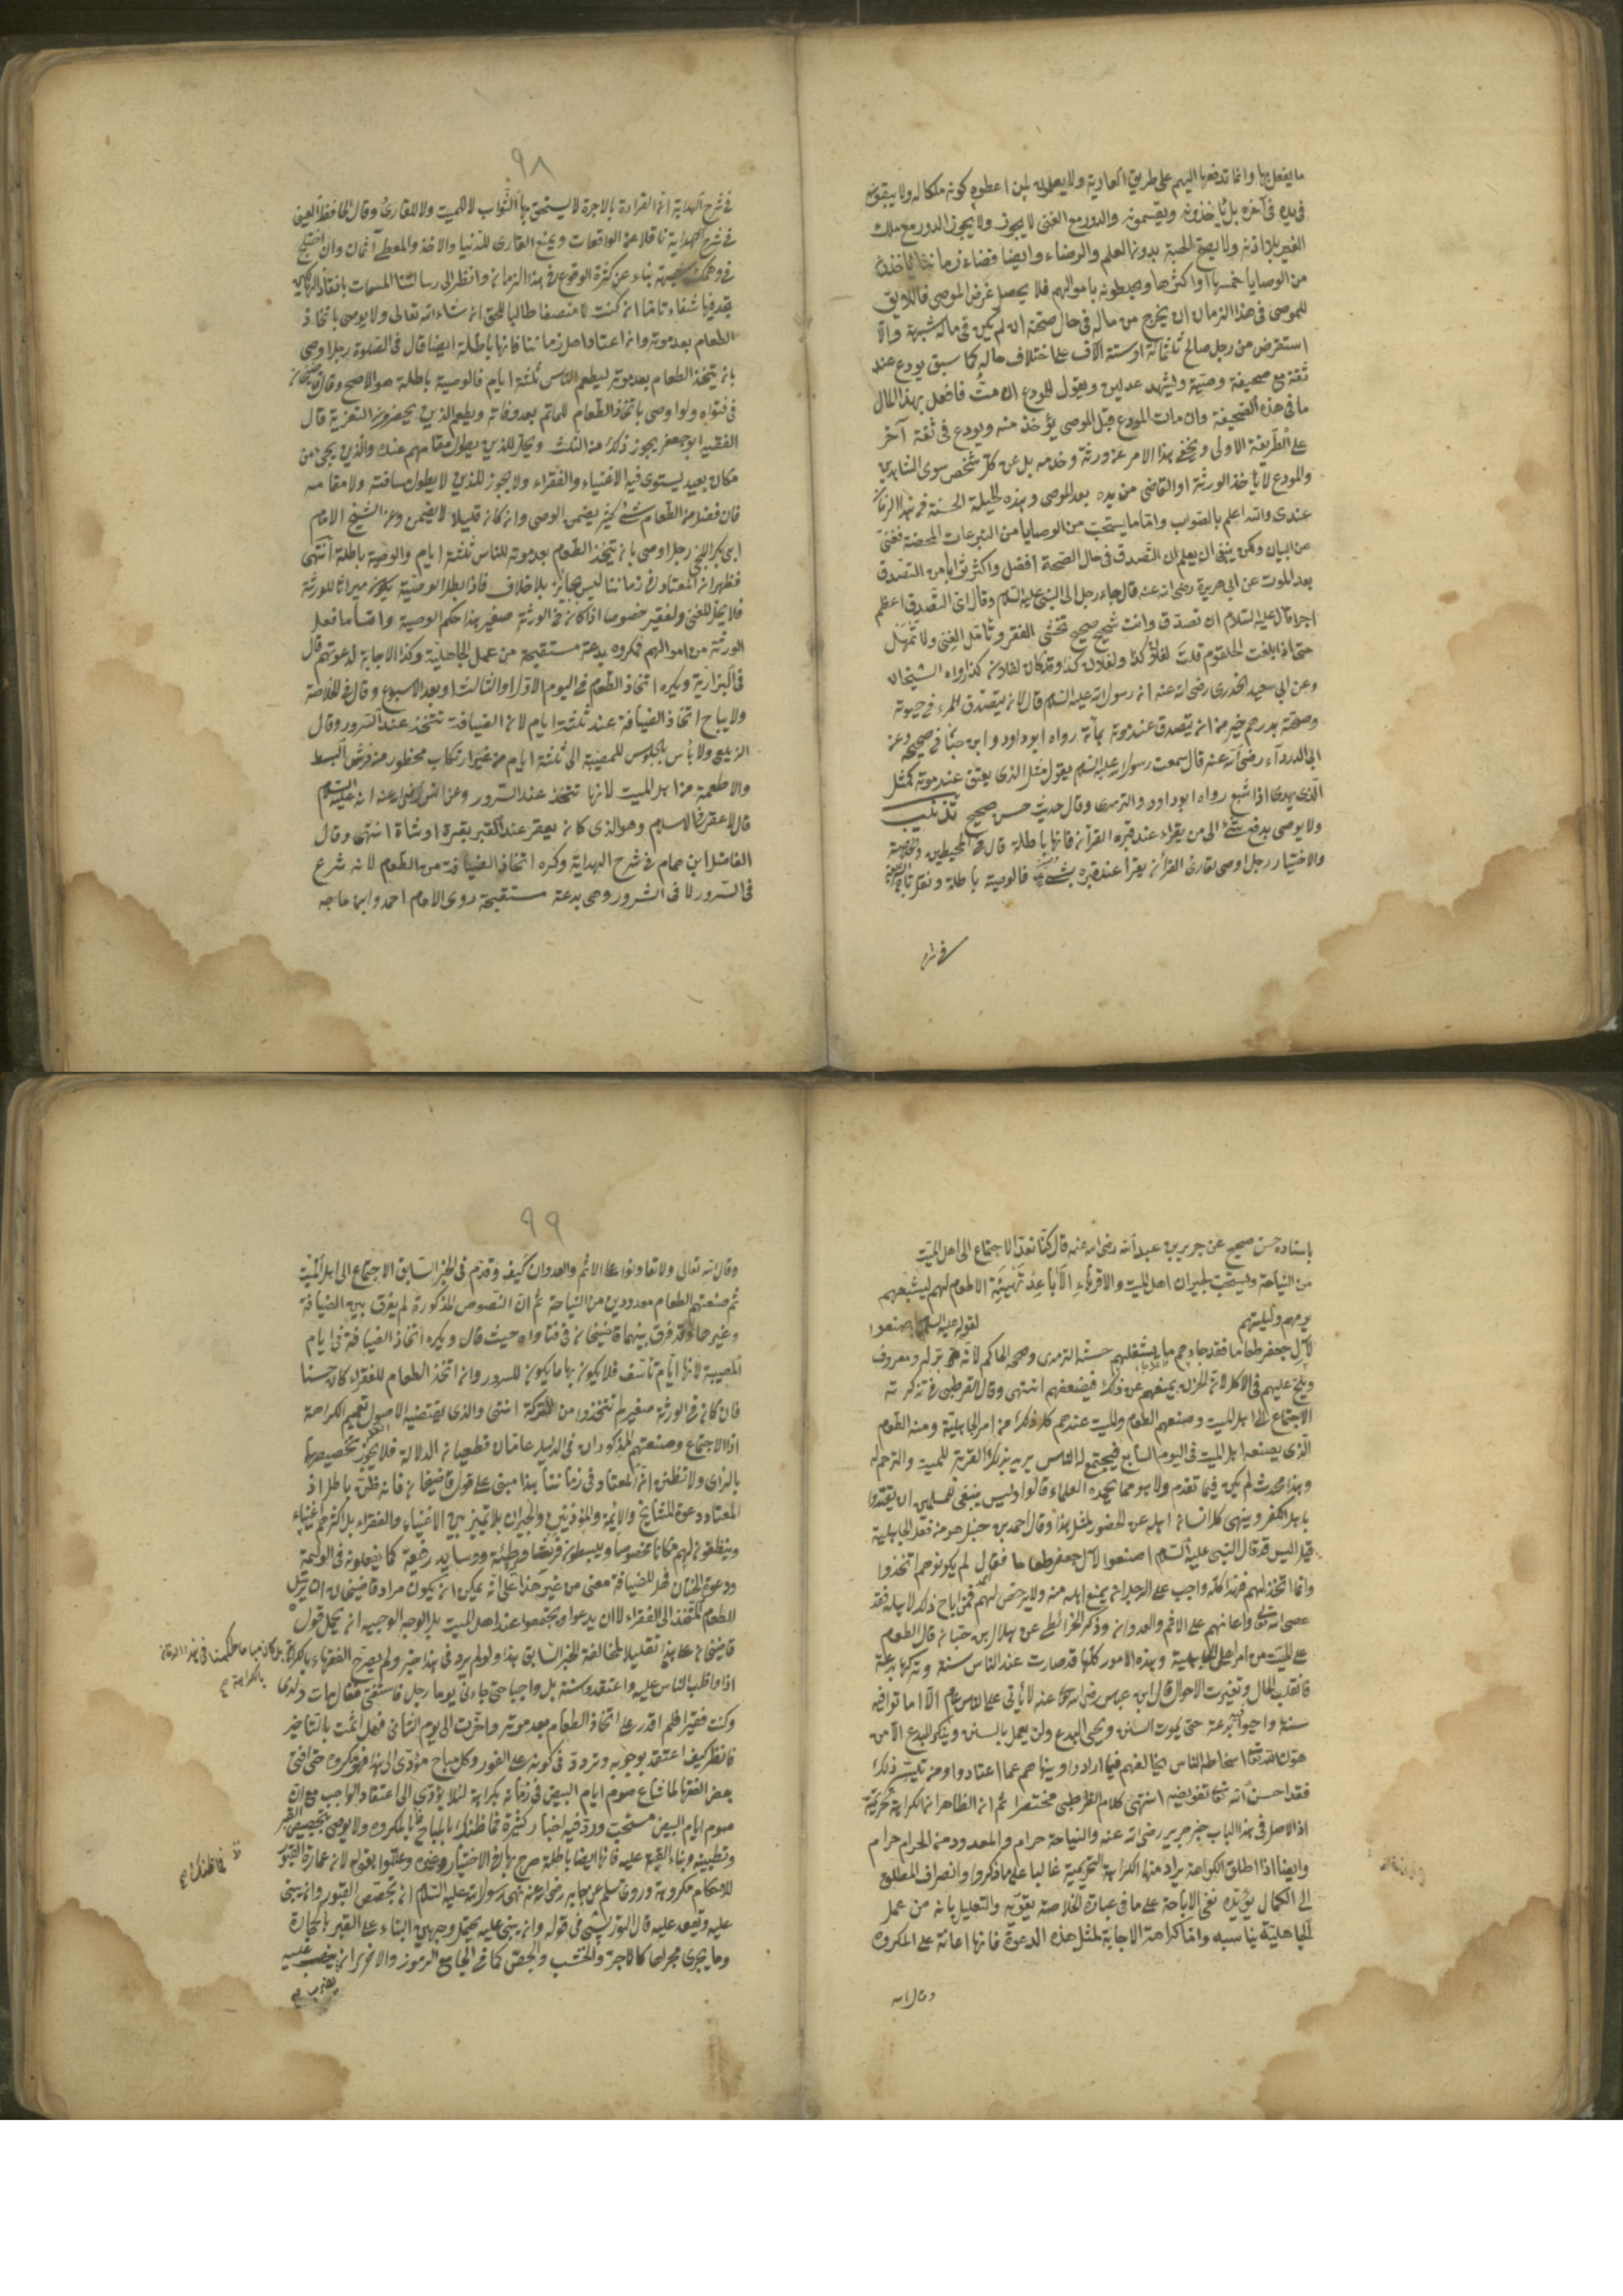 ما يفعل بها وانما تدفعها اليهم على طريق العارية ولا يعلمون لمن اعطوه كونه ملكا له ولا يبقون
فى يده فى آخره بل يأخذونه ويقسمونه والدور مع الغنى لا يجوز ولا يجوز الدور مع ملك
الغير بلا اذنه ولا يصح الهبة بدون العلم والرضاء وايضا قضاة زماننا يأخذون
من الوصايا خمسها او اكثرها ويخلطونه باموالهم فلا يحصل غرض الموصى فاللايق
للموصى فى هذا الزمان ان يخرج من ماله فى حال صحته ان لم يكن فى ماله شبهة والا
استقرض من رجل صالح ثلثمائة او ستة آلاف على اختلاف حاله كما سبق يودع عند
ثقة مع صحيفة وصية وليشهد عدلين ويقول للمودع ان مت فافعل بهذا المال
ما فى هذه الصحيفة وان مات المودع قبل الموصى يؤخذ منه ويودع فى ثقة آخر
على الطريقة الاولى ويخفى هذا الامر عن ورثة وخدمه بل عن كل شخص سوى الشاهدين
والمودع لئلا يأخذ الورثة او القاضى من يده بعد الموصى وهذه الحيلة الحسنة فى هذا الزمان
عندى والله اعلم بالصواب واما ما يستحب من الوصايا من التبرعات المحضة فغنى
عن البيان ولكن ينبغى ان يعلم ان التصدق فى حال الصحة افضل واكثر ثوابا من التصدق
بعد الموت عن ابى هريرة رضى الله عنه قال جاء رجل الى النبى عليه السلام وقال اى التصدق اعظم
اجرا قال عليه السلام ان تصدق وانت شحيح صحيح تخشى الفقر وتأمل الغنى ولا تمهل
حتى اذا بلغت الحلقوم قلت لفلان كذا ولفلان كذا وقد كان لفلان كذا رواه الشيخان
وعن ابى سعيد الخدرى رضى الله عنه ان رسول الله عليه السلام قال لان يتصدق المرء فى حيوته
وصحته بدرهم خير من ان يتصدق عند موته بمأة رواه ابو داود وابن حبان فى صحيحه وعن
ابى الدرداء رضى الله عنه قال سمعت رسول الله عليه السلام يقول مثل الذى يعتق عند موته كمثل
الذى يهدى اذا شبع رواه ابو داود والترمذى وقال حديث حسن صحيح تذنيب
ولا يوصى بدفع شئ الى من يقراء عند قبره القرآن فانها باطلة قال فى المحيطين والخلاصة
والاختيار رجل اوصى لقارئ القرآن يقرأ عند قبره بشئ فالوصية باطلة
فى شرح
٩٨
فى شرح الهداية ان القراءة بالاجرة لا يستحق بها الثواب لا للميت ولا للقارئ وقال الحافظ العينى
فى شرح الهداية ناقلا عن الواقعات ويمنع القارى للدنيا والآخذ والمعطى آثمان وان اختلج
فى وهمك شبهة بناء عن كثرة الوقوع فى هذا الزمان فانظر الى رسالتنا المسمات بانقاذ الهالكين
تجد فيها شفاء تاما ان كنت منصفا طالبا للحق ان شاء الله تعالى ولا يوصى باتخاذ
الطعام بعد موته وان اعتاد اهل زماننا فانها باطلة ايضا قال فى الصلوة رجل اوصى
بان يتخذ الطعام بعد موته ليطعم الناس ثلثة ايام فالوصية باطلة هو الاصح وقال قاضيخان
فى فتواه ولو اوصى باتخاذ الطعام للماتم بعد وفاته ويطعم الذين يحضرون التعزية قال
الفقيه ابو جعفر يجوز ذلك من الثلث ويحل للذين يطول مقامهم عنده والذين يجئ من
مكان بعيد يستوى فيه الاغنياء والفقراء ولا يجوز للذين لا يطول مسافته ولا مقامه
فان فضل من الطعام شئ كثير يضمن الوصى وان كان قليلا لا يضمن وعن الشيخ الامام
ابى بكر البلخى رجل اوصى بان يتخذ الطعام بعد موته للناس ثلثة ايام والوصية باطلة انتهى
فظهر ان المعتاد فى زماننا ليس بجائز بلا خلاف فاذا بطل الوصية يكون ميراثا للورثة
فلا يحل للغنى ولفقير خصوصا اذا كان فى الورثة صغير هذا حكم الوصية واما ما فعل
الورثة من اموالهم فمكروه بدعة مستقبحة من عمل الجاهلية وكذا الاجابة لدعوتهم قال
فى البزازية ويكره اتخاذ الطعام فى اليوم الاول والثالث وبعد الاسبوع وقال فى الخلاصة
ولا يباح اتخاذ الضيافة عند ثلثة ايام لان الضيافة تتخذ عند السرور وقال
الزيلعى ولا بأس بالجلوس للمصيبة الى ثلثة ايام من غير ارتكاب محظور من فرش البسط
والاطعمة من اهل الميت لانها تتخذ عند السرور وعن انس رضى الله عنه انه عليه السلام
قال لا عقر فى الاسلام وهو الذى كان يعقر عند القبر بقرة او شاة انتهى وقال
الفاضل ابن همام فى شرح الهداية وكره اتخاذ الضيافة من الطعام لانه شرع
فى السرور لا فى الشرور وهى بدعة مستقبحة روى الامام احمد وابن ماجه
باسناده حسن صحيح عن جرير بن عبد الله رضى الله عنه قال كنا نعد الاجتماع الى اهل الميت
من النياحة ويستحب لجيران اهل الميت والاقرباء الاباعد تهيئة الاطعام لهم ليشبعهم
يومهم وليلتهم لقوله عليه السلام اصنعوا
لآل جعفر طعاما فقد جاءهم ما يشغلهم حسنه الترمذى وصححه الحاكم لانه بر ومعروف
ويلح عليهم فى الاكل لان الحزن يمنعهم عن ذلك فيضعفهم انتهى وقال القرطبى فى تذكرته
الاجتماع الى اهل الميت وصنعهم الطعام والمبيت عندهم كل ذلك من امر الجاهلية ومنه الطعام
الذى يصنعه اهل الميت فى اليوم السابع فيجتمع له الناس يريد بذلك القربة للميت والترحم له
وهذا محدث لم يكن فيما تقدم ولا هو مما يحمده العلماء قالوا وليس ينبغى للمسلمين ان يقتدوا
باهل الكفر وينهى كل انسان اهله عن الحضور لمثل هذا وقال احمد بن حنبل هو من فعل الجاهلية
قيل اليس قد قال النبى عليه السلام اصنعوا لآل جعفر طعاما فقال لم يكونوا هم اتخذوا
وانما اتخذ لهم فهذا كله واجب على الرجل ان يمنع اهله منه ولا يرخص لهم فمن اباح ذلك لاهله فقد
عصى الله تعالى واعانهم على الاثم والعدوان وذكر الخرائطى عن هلال بن حبان قال الطعام
على الميت من امر الجاهلية وهذه الامور كلها قد صارت عند الناس سنة وتركها بدعة
فانقلب الحال وتغيرت الاحوال قال ابن عباس رضى الله عنه لا يأتى على الناس عام الا اماتوا فيه
سنة واحيوا فيه بدعة حتى يموت السنن ويحيى البدع ولن يعمل بالسنن وينكر البدع الا من
هون الله تعالى اسخاط الناس بمخالفتهم فيما ارادوا وينهاهم عما اعتادوا ومن تيسر ذلك
فقد احسن الله تعالى تعويضه انتهى كلام القرطبى مختصرا ثم ان الظاهر ان الكراهة تحريمية
اذ الاصل فى هذا الباب خبر جرير رضى الله عنه والنياحة حرام والمعدود من الحرام حرام
وايضا اذا اطلق الكراهة يراد منها الكراهة التحريمية غالبا على ما ذكروا وانصراف المطلق
الى الكمال يؤيده نفى الاباحة على ما فى عبارة الخلاصة يقويه والتعليل بانه من عمل
الجاهلية يناسبه واما كراهة الاجابة لمثل هذه الدعوة فانها اعانة على المكروه
وقال الله
٩٩
وقال الله تعالى ولا تعاونوا على الاثم والعدوان كيف وقدم فى الخبر السابق الاجتماع الى اهل الميت
ثم صنعتهم الطعام معدودين من النياحة ثم ان النصوص المذكورة لم يفرق بين الضيافة
وغيرها وقد فرق بينهما قاضيخان فى فتاواه حيث قال ويكره اتخاذ الضيافة فى ايام
المصيبة لانها ايام تأسف فلا يكون بها ما يكون للسرور وان اتخذ الطعام للفقراء كان حسنا
فان كان فى الورثة صغير لم تتخذوا من التركة انتهى والذى يقتضيه الاصول تعميم الكراهة
اذا الاجتماع وصنعتهم المذكوران فى الدليل عامان قطعيان الدلالة فلا يجوز تخصيصها
بالراى ولا تظنن ان المعتاد فى زماننا هذا مبنى على قول قاضيخان فانه ظن باطل اذ
المعتاد دعوة المشايخ والائمة والمؤذنين والجيران بلا تمييز بين الاغنياء والفقراء بل اكثرهم اغنياء
وينظفون لهم مكانا مخصوصا ويبسطون فرشا وطيئة ووسايد رفيعة كما يفعلونه فى الوليمة
ودعوة الختان فهل للضيافة معنى من غير هذا على انه يمكن ان يكون مراد قاضيخان ان يرسل
الطعام المتخذ الى الفقراء لا ان يدعوا ويجتمعوا عند اهل الميت بل الوجه الوجيه ان يحمل قول
قاضيخان على هذا تقليلا لمخالفة الخبر السابق هذا ولو لم يرد فى هذا خبر ولم يصرح الفقهاء بالكراهة بل كان مباحا حكمنا فى هذا الزمان
بالكراهة صح
اذا واظب الناس عليه واعتقدوه سنة بل واجبا حتى جاءنى يوما رجل فاستفتى فقال مات ولدى
وكنت فقيرا فلم اقدر على اتخاذ الطعام بعد موته واخرت الى يوم الثانى فهل اثمت بالتأخير
فانظر كيف اعتقد بوجوبه وتردد فى كونه على الفور وكل مباح مؤدى الى هذا فهو مكروه حتى افتى
بعض الفقهاء لما شاع صوم ايام البيض فى زمانه بكراهة لئلا يؤدى الى اعتقاد الواجب مع ان
صوم ايام البيض مستحب ورد فيه اخبار كثيرة فما ظنك بالمباح فما بالمكروه ولا يوصى بتجصيص القبر
فما ظنك صح
وتطيينه وبناء القبة عليه فانها ايضا باطلة صرح بها فى الاختيار وغيره وعللوا بقولهم لان عمارة القبور
للاحكام مكروهة وروى مسلم عن جابر رضى الله عنه نهى رسول الله عليه السلام ان يجصص القبور وان يبنى
عليه ويقعد عليه قال التوربشتى فى قوله وان يبنى عليه يحتمل وجهين البناء على القبر بالحجارة
وما يجرى مجراها كالآجر والخشب والجص كما فى الجامع الرموز والآخر ان يضرب عليه
يضرب صح